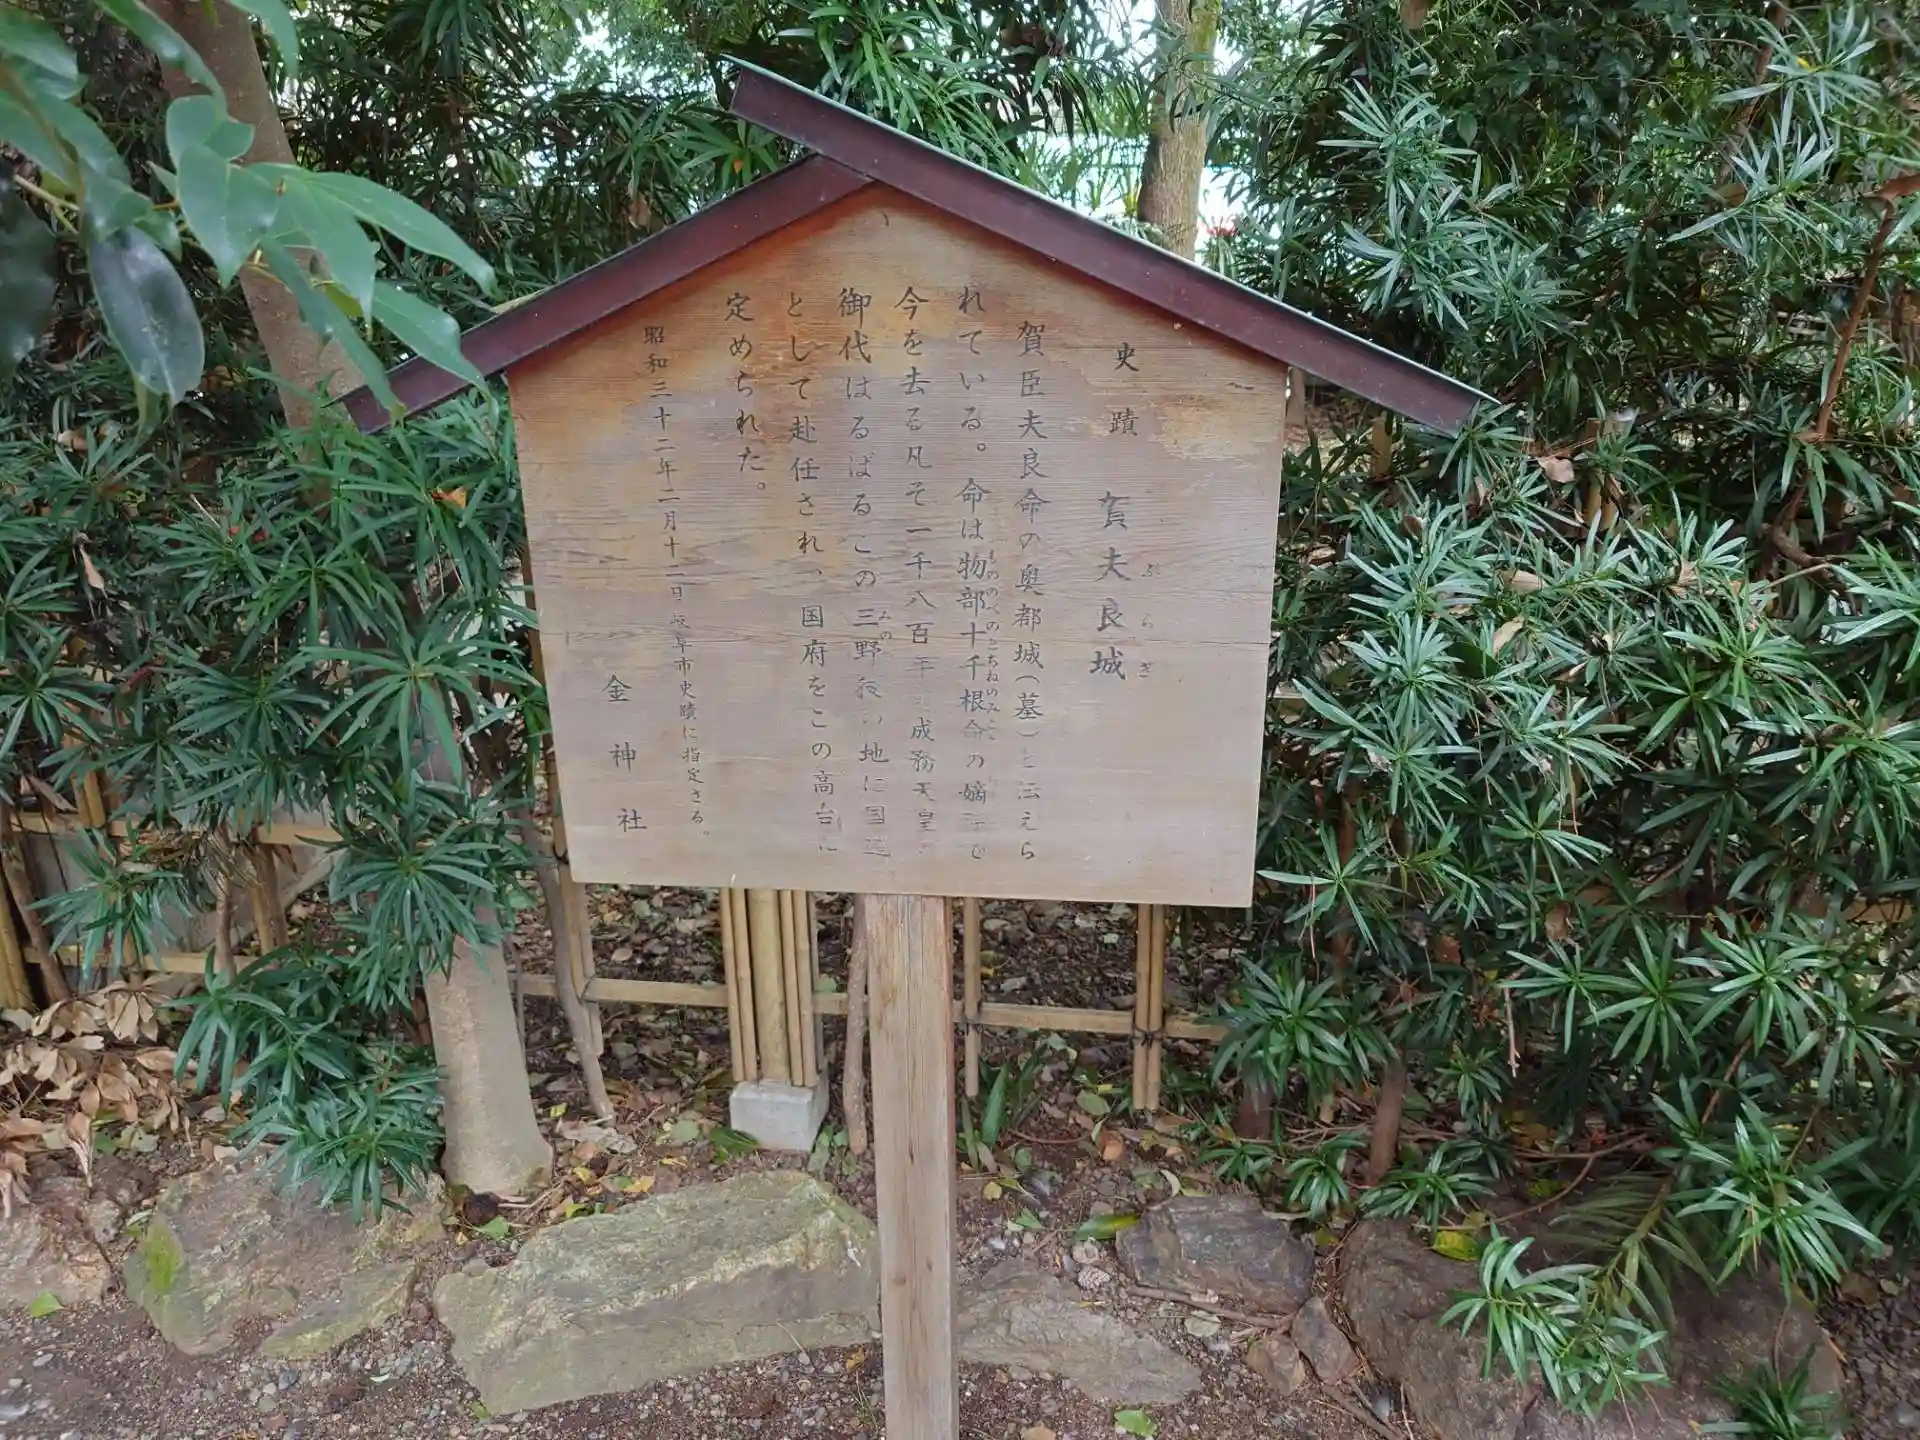 史蹟 賀夫良城
ぶらぎ
賀臣夫良命の奥都城(墓)と伝えら
れている。命は物部十千根命の嫡
もののべのとちねのみこと
今を去る凡そ一千八百年 成務天皇
御代はるばるこの三野 い地に国造
みの
として赴任され、国府をこの高台に
定められた。
昭和三十二年二月十二日岐阜市史蹟に指定さる。
金神社